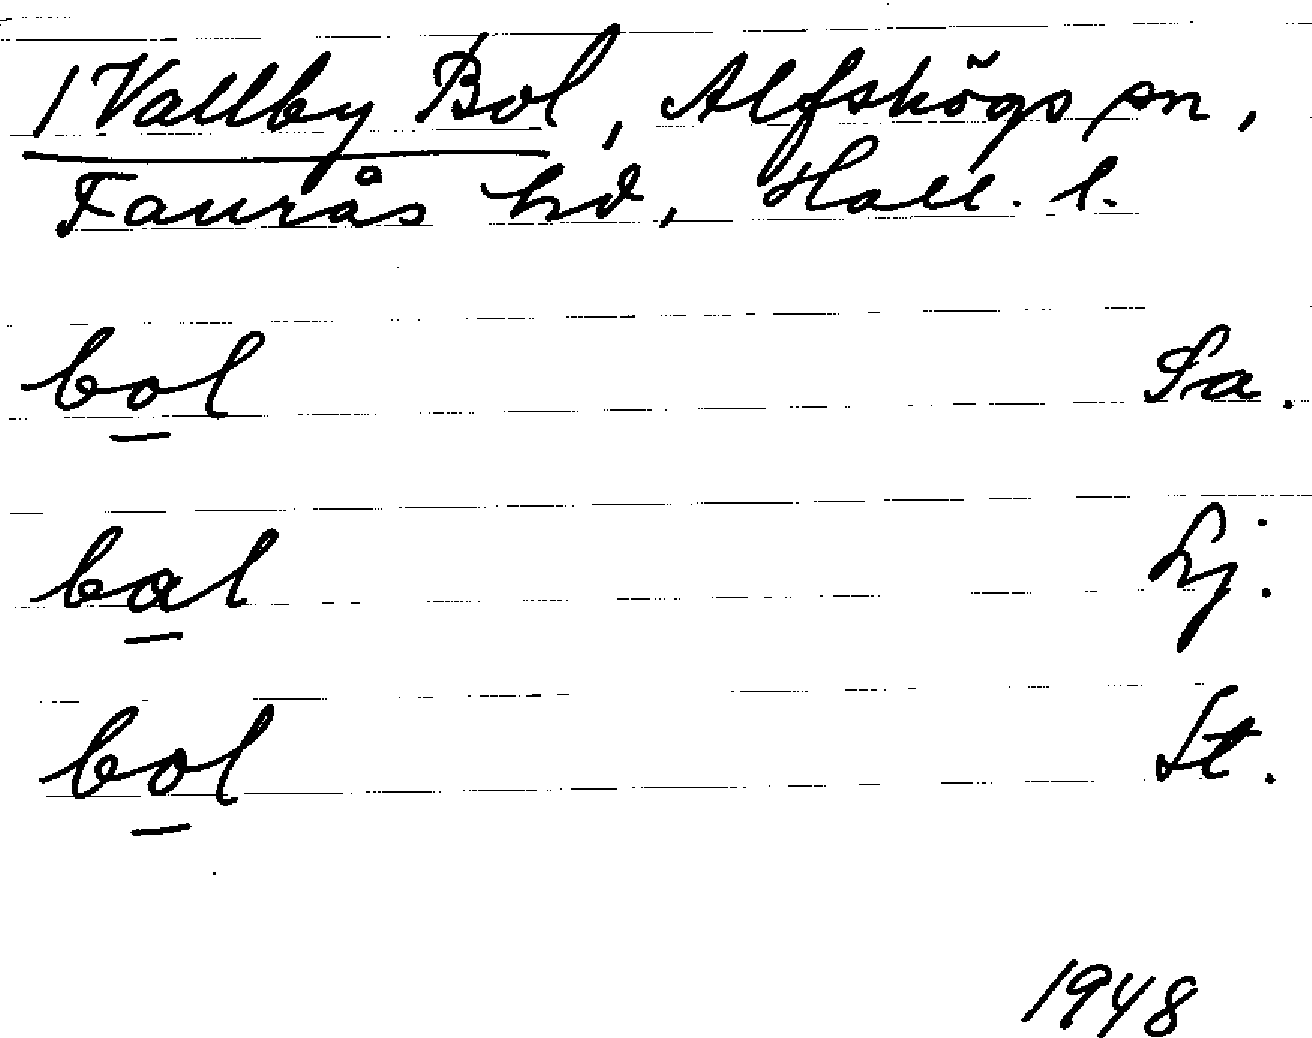 /Vallby Bol, Alfshögs sn,
Faurås hd, Hall. l.
bol Sa.
bal Lj.
bol St.
1948